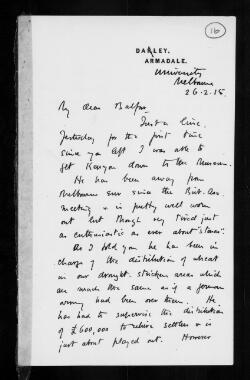 16
DARLEY.
ARMADALE.
University
Melbourne
26.2.15.
My dear Balfour,
Just a line.
Yesterday for the first time
since you left I was able to
get Kenyon down to the Museum.
He has been away from
Melbourne ever since the Brit. Ass.
meeting & is pretty well worn
out but though very tired just
as enthusiastic as ever about "stones".
As I told you he has been in
charge of the distribution of wheat
in our drought stricken areas which
are much the same as if a german
army had been over them. He
has had to supervise the distribution
of £600,000 to relieve settlers & is
just about played out. However